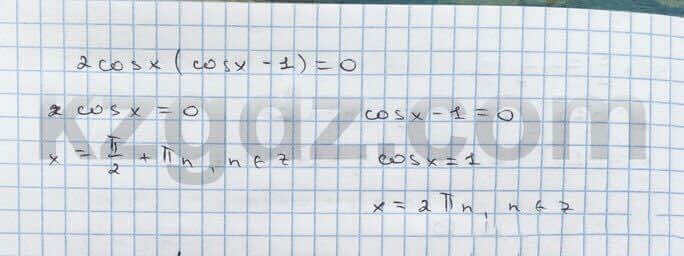 2cosx(cosx-1)=0
2cosx=0
x=π/2+πn, n∈z
cosx-1=0
cosx=1
x=2πn, n∈z
kzgdz.com